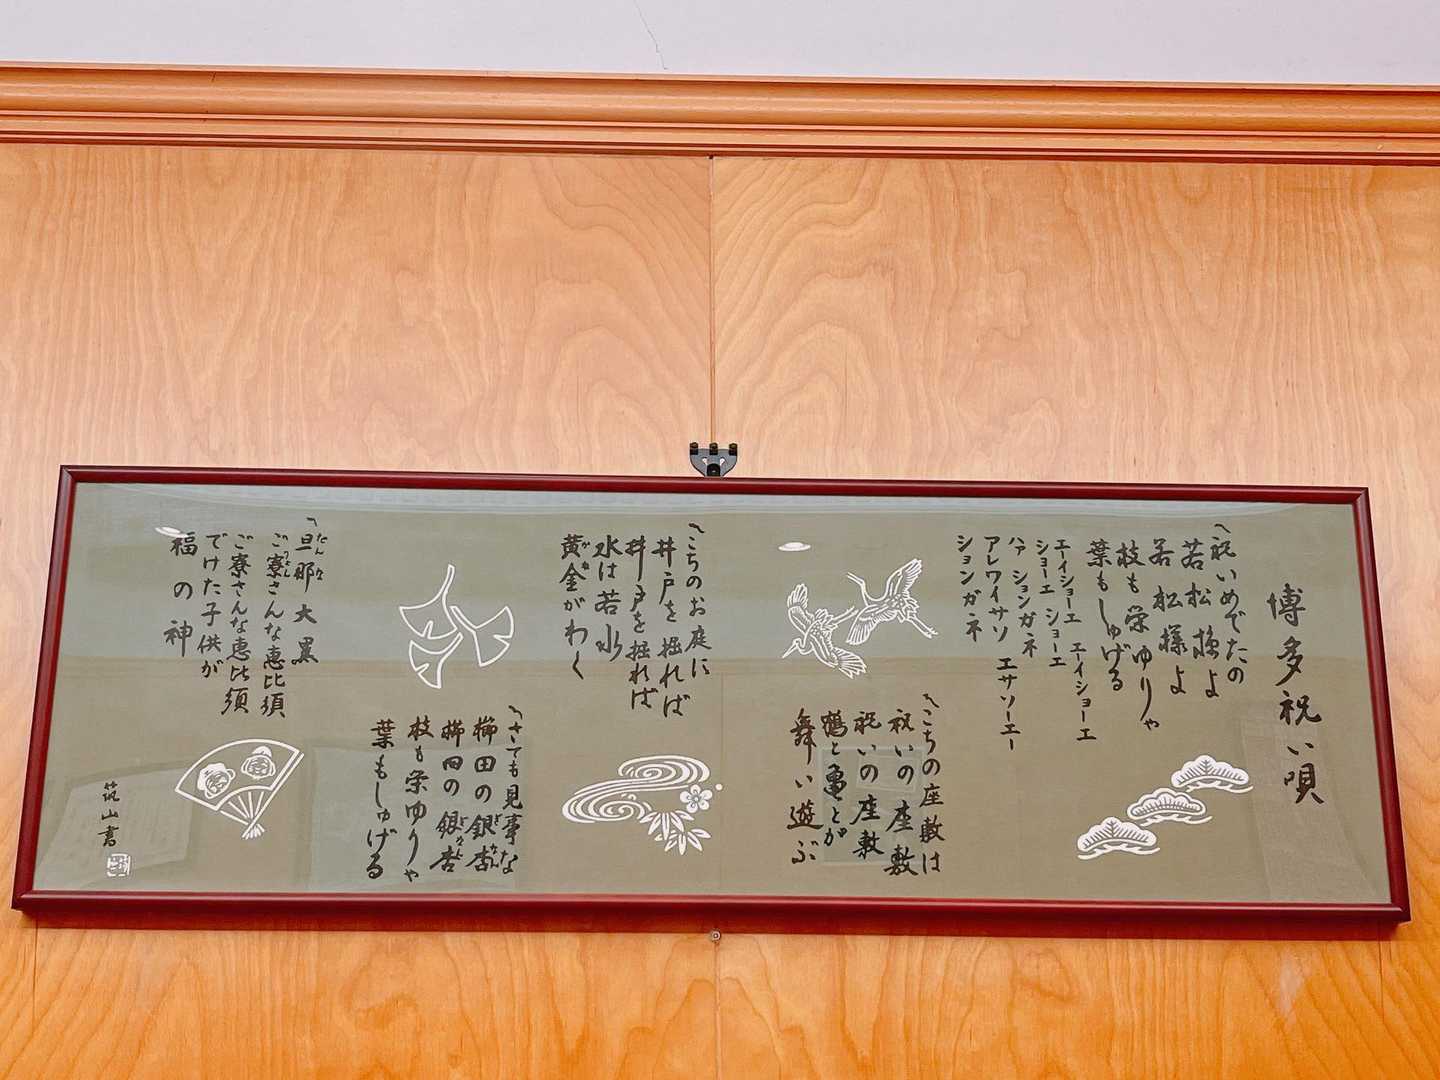 博多祝い唄
〽祝いめでたの
若松様よ
若松様よ
枝も栄ゆりゃ
葉もしゅげる
エーイショーエ エーイショーエ
ショーエ ショーエ
ハァ ションガネ
アレワイサソ エサソーエー
ションガネ
〽こちの座敷は
祝いの座敷
祝いの座敷
鶴と亀とが
舞い遊ぶ
〽こちのお庭に
井戸を掘れば
井戸を掘れば
水は若水
黄金がわく
がね
〽さても見事な
櫛田の銀杏
ぎなん
櫛田の銀杏
ぎなん
枝も栄ゆりゃ
葉もしゅげる
〽旦那大黒
だんな
ご寮さんな恵比須
ごりょん
ご寮さんな恵比須
でけた子供が
福の神
筑山書